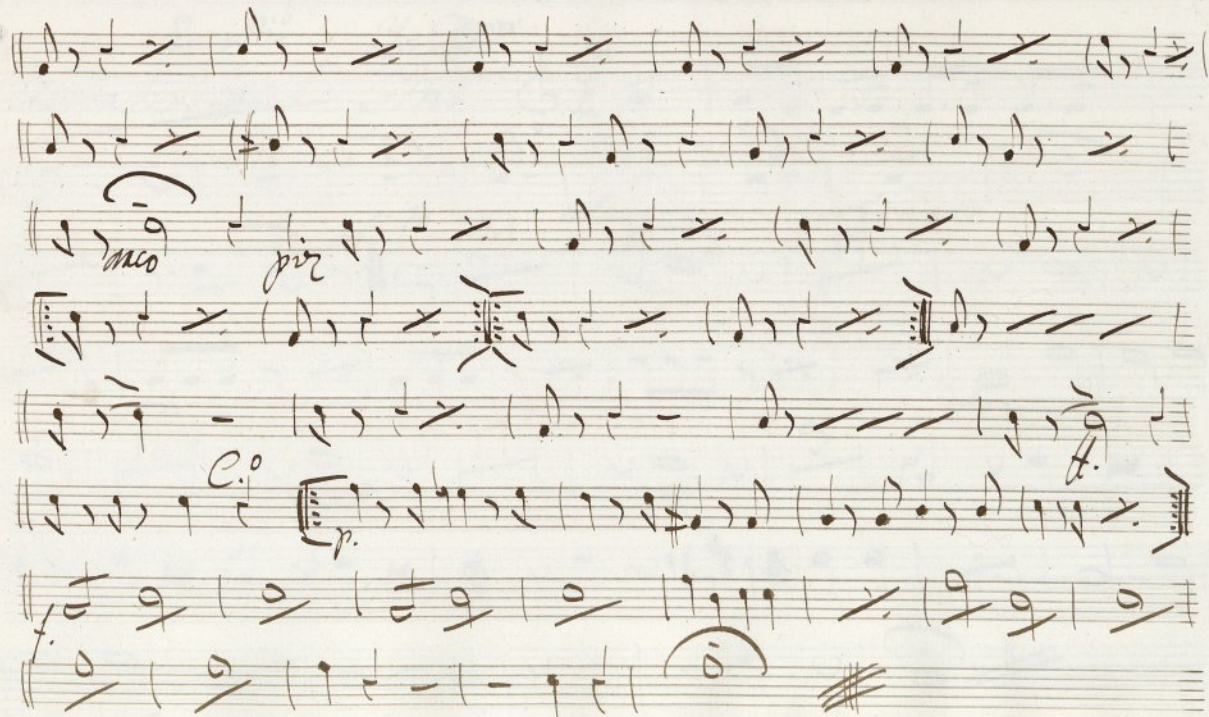 arco piz
f.
C.º
p.
f.